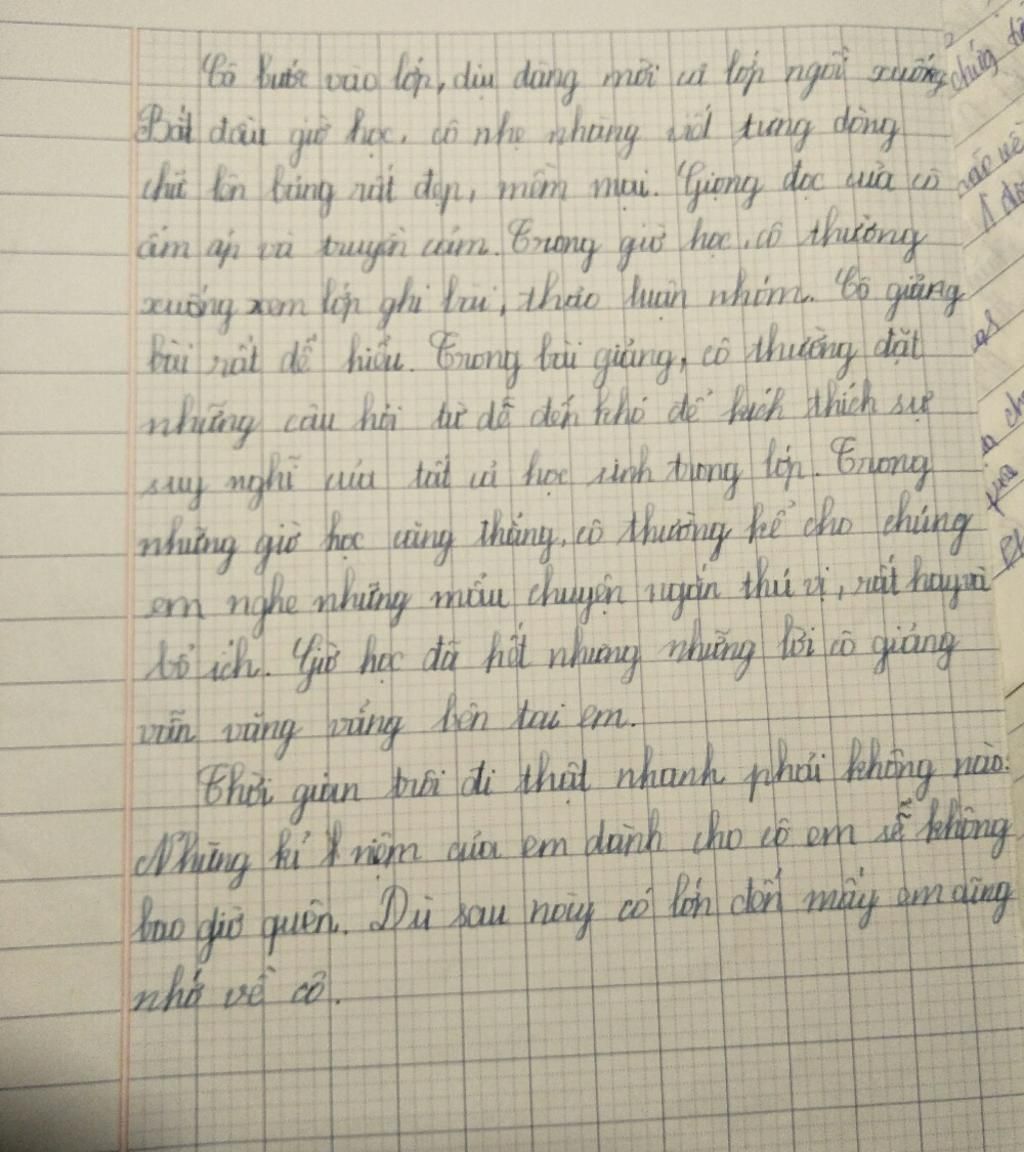 Cô bước vào lớp, dịu dàng mời cả lớp ngồi xuống
Bắt đầu giờ học, cô nhẹ nhàng viết từng dòng
chữ lên bảng rất đẹp, mềm mại. Giọng đọc của cô
ấm áp và truyền cảm. Trong giờ học, cô thường
xuống xem lớp ghi bài, thảo luận nhóm. Cô giảng
bài rất dễ hiểu. Trong bài giảng, cô thường đặt
những câu hỏi từ dễ đến khó để kích thích sự
suy nghĩ của tất cả học sinh trong lớp. Trong
những giờ học căng thẳng, cô thường kể cho chúng
em nghe những mẩu chuyện ngắn thú vị, rất hay và
bổ ích. Giờ học đã hết nhưng những lời cô giảng
vẫn văng vẳng bên tai em.
Thời gian trôi đi thật nhanh phải không nào.
Những kỉ niệm của em dành cho cô em sẽ không
bao giờ quên. Dù sau này có lớn đến mấy em cũng
nhớ về cô.